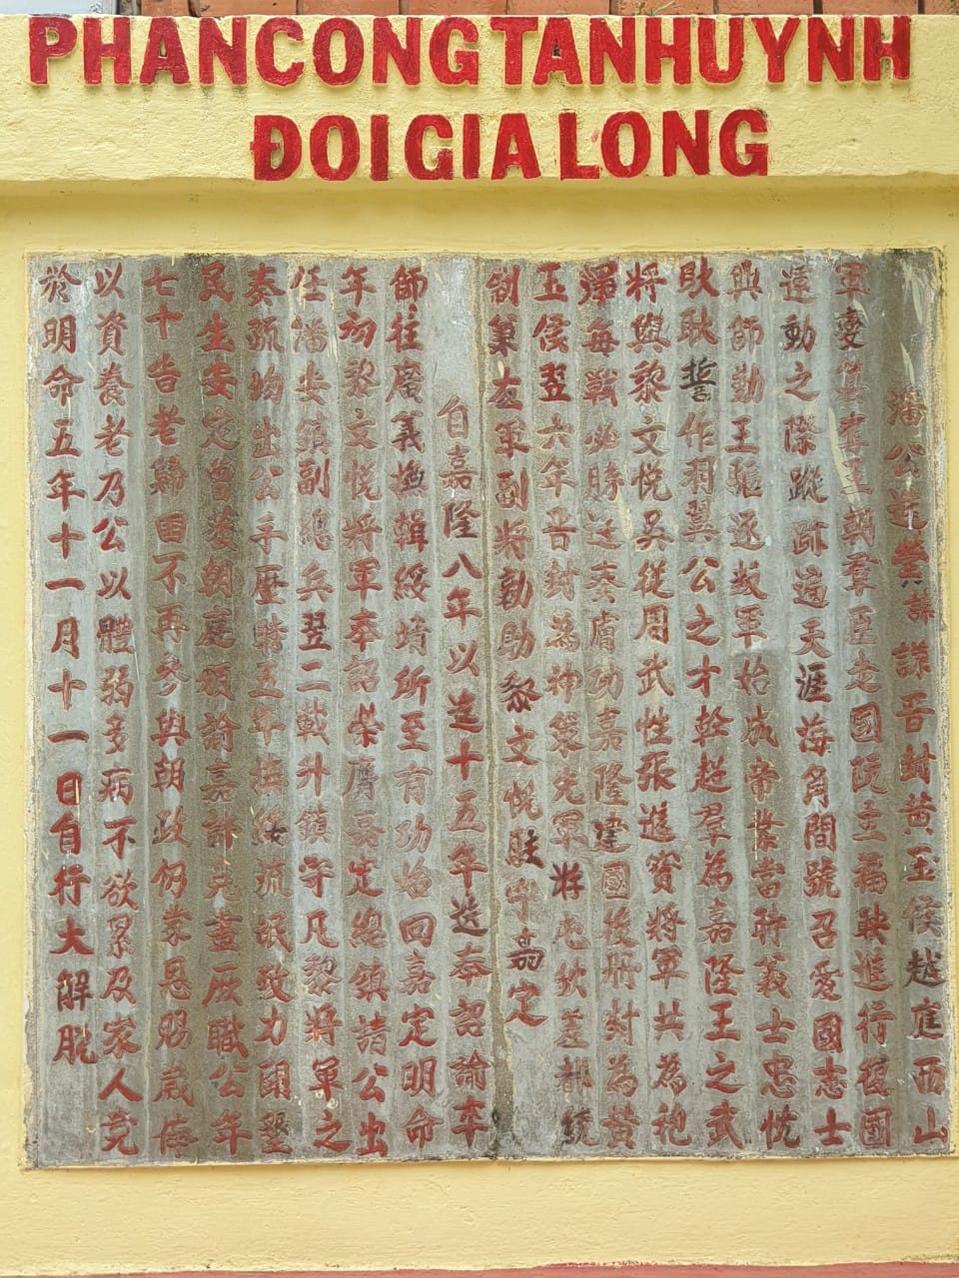 PHANCONGTANHUYNH
ĐOIGIALONG
潘公進業謙謹晋封黄玉侯越雇西山
軍變真奮王朝羣臣走國阮主福映進行復國
逹動之際蹤跡遍天涯海角間號召愛國志士
興師勤王驅逐叛軍始成帝業當時義士忠忱
耿耿誓作羽翼公之才幹超羣為嘉隆王之武
將與黎文悦吳從周武性張進寳將軍共為袍
澤每戰必勝廷奏膚功嘉隆建國後册封為黄
玉侯翌六年晋封為神策先軍將屯欽差都統
制菓左軍副將勷助黎文悦駐守嘉定
自嘉隆八年以迄十五年迭奉詔諭率
師往廣義漁輯綏靖所至有功始回嘉定明命
年初黎文悦將軍奉詔榮膺嘉定總鎮請公出
任潘安鎮副總兵翌二載升鎮守凡黎將軍之
奏疏均出公手歷時五年撫綏流氓致力開墾
民生安定曾蒙朝廷頒諭嘉許克盡厥職公年
七十告老歸田不再參與朝政仍蒙恩賜歲俸
以資養老乃公以體弱多病不欲累及家人竟
於明命五年十一月十一日自行大解脱